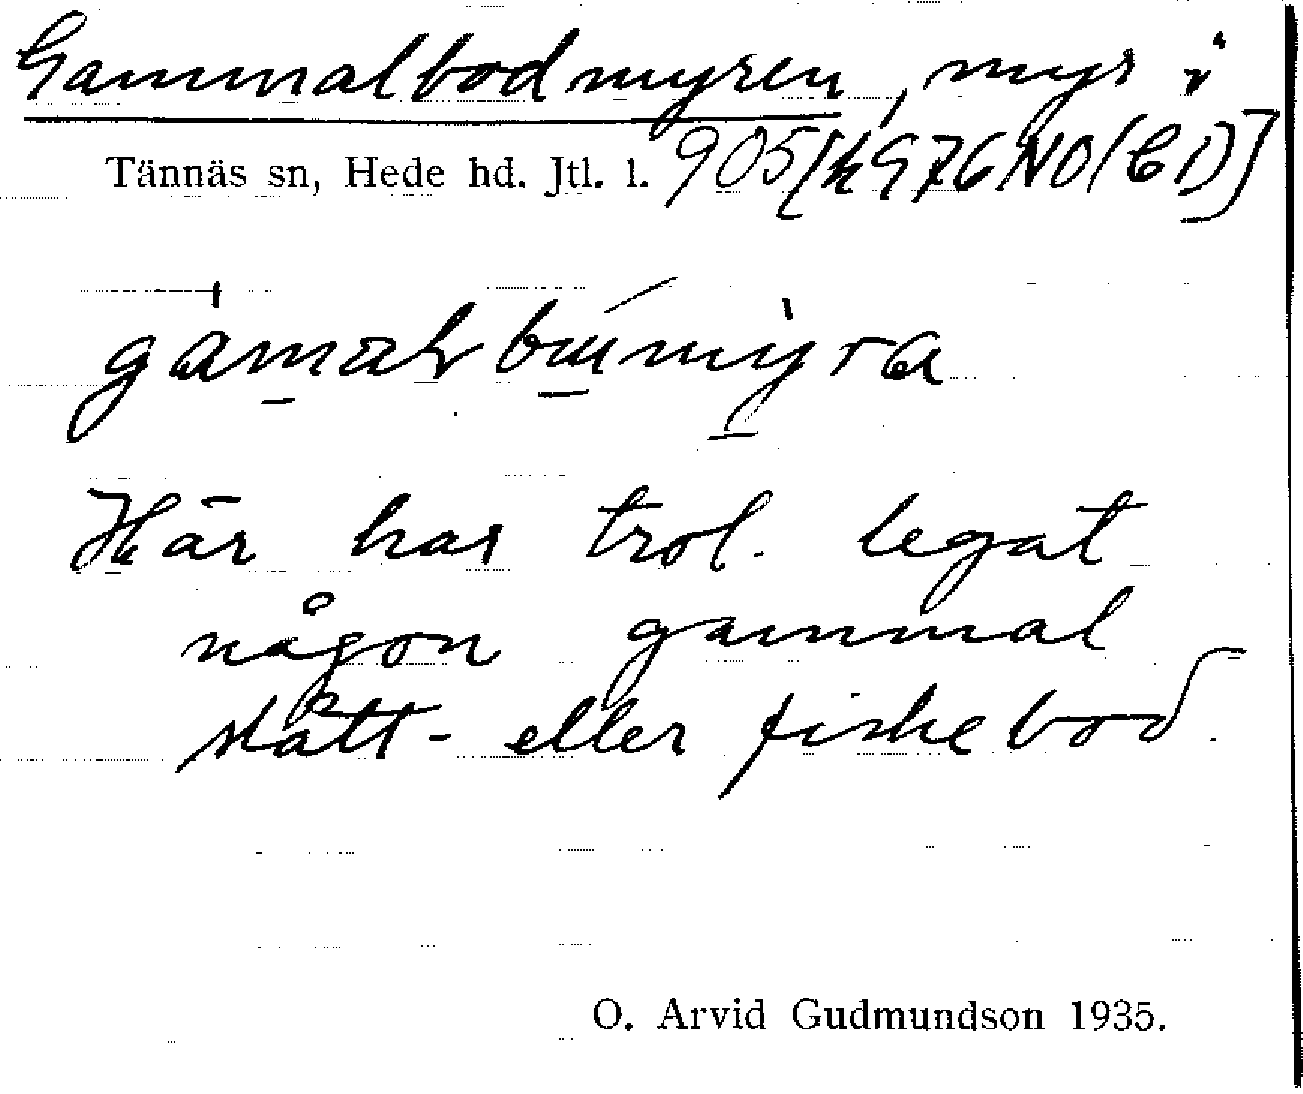 Gammalbodmyren, myr i
Tännäs sn, Hede hd. Jtl. l. 905 [k 976 NO (C 1)]
Här har trol. legat
någon gammal
slått- eller fiskebod.
O. Arvid Gudmundson 1935.